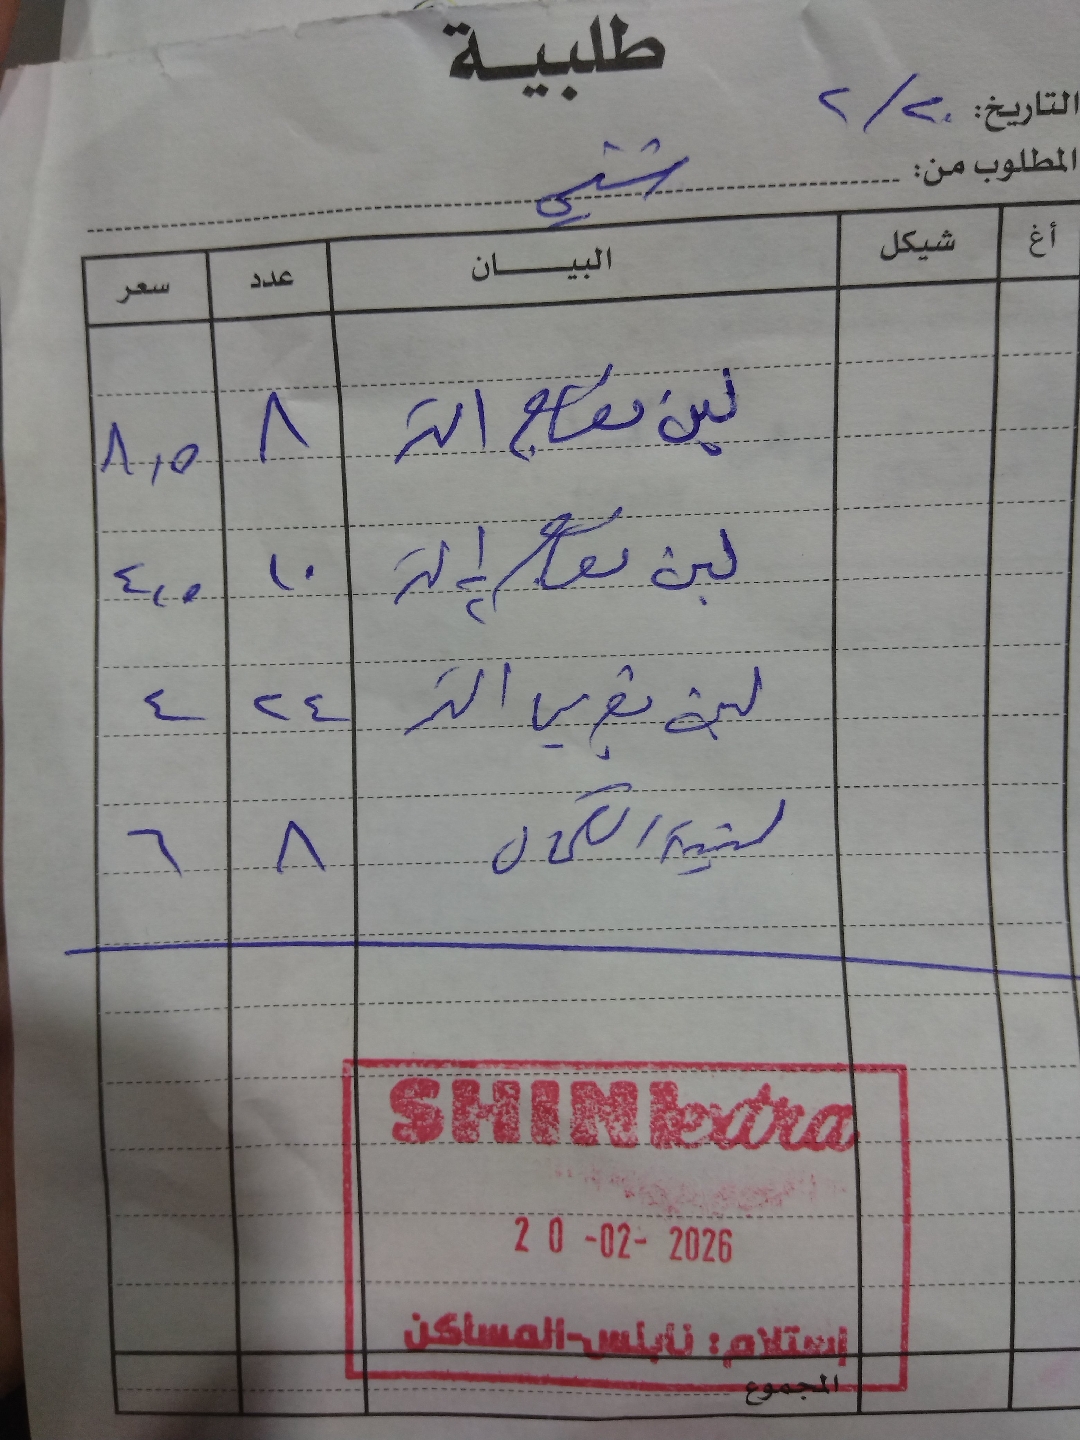 طلبية
التاريخ: ٢٠/٢
المطلوب من:
أغ شيكل البيـــان عدد سعر
لبن نعاج التر ٨ ٨,٥
لبن نعاج ١/٢ لتر ١٠ ٤,٥
لبن التر ٢٤ ٤
لبنة ٨ ٦
SHINI extra
20 -02- 2026
إستلام: نابلس-المساكن
المجموع